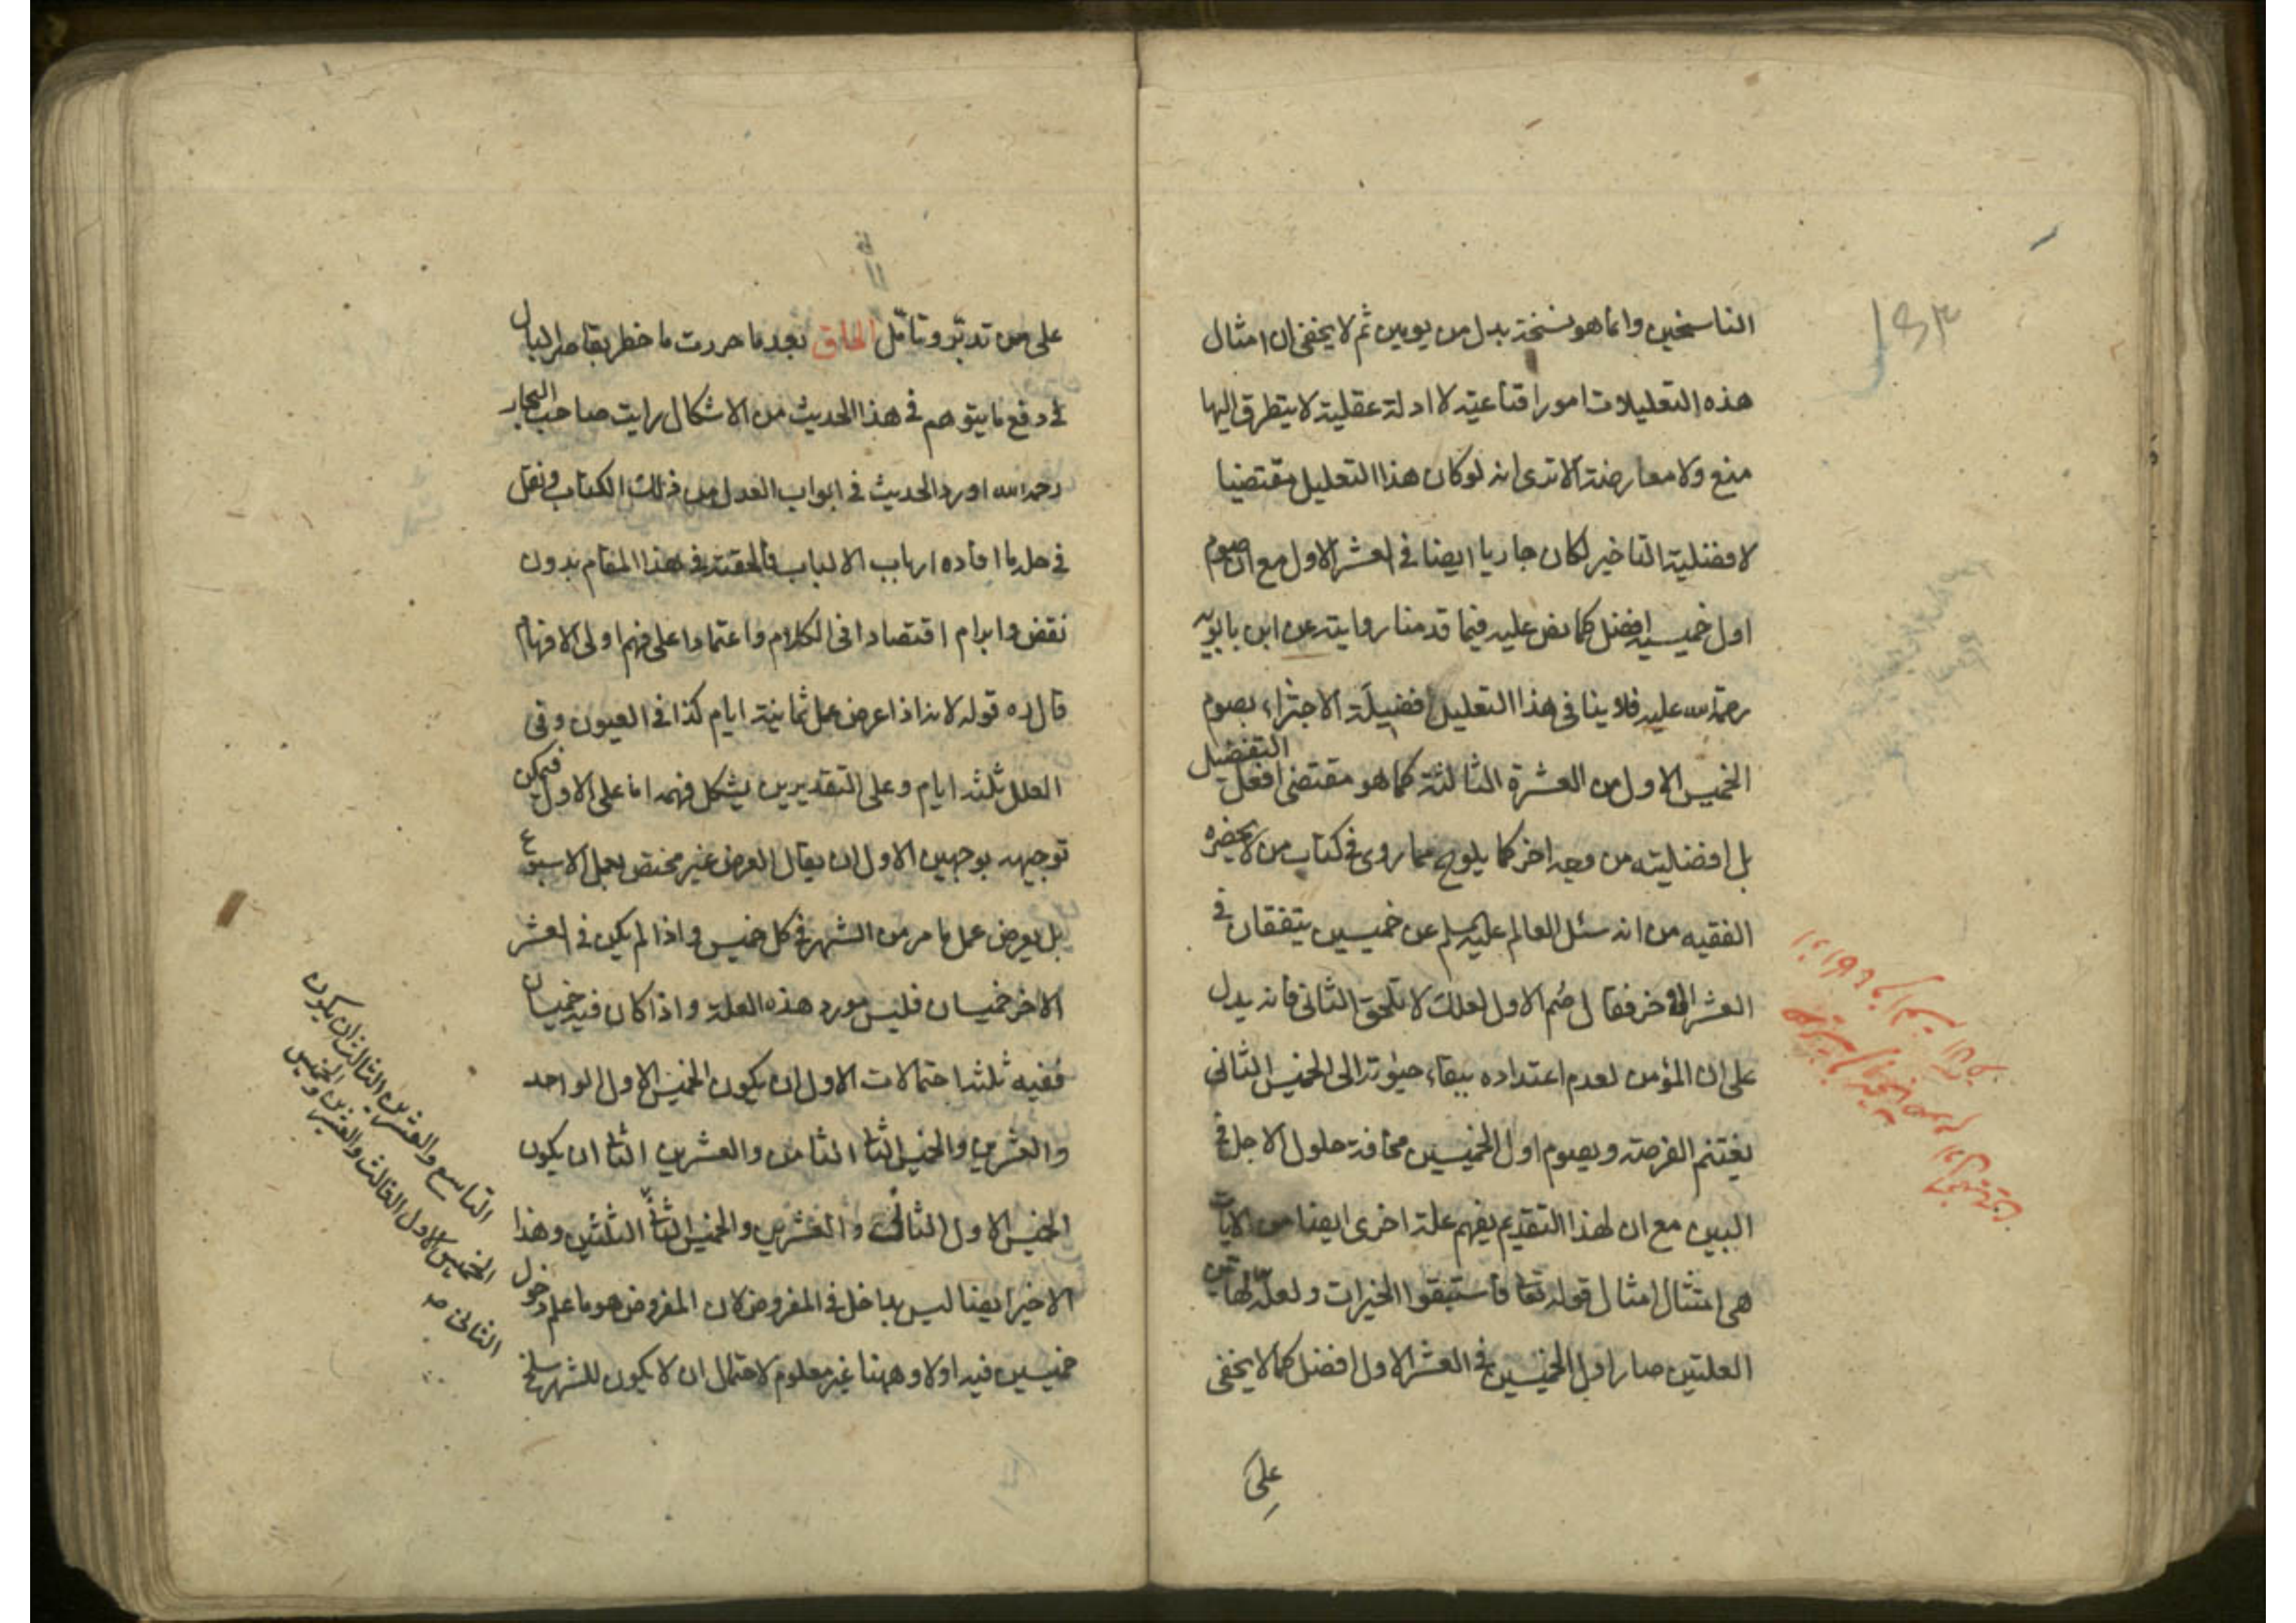 الناسخين وانما هو نسخة بدل من يومين ثم لا يخفى ان امثال
هذه التعليلات امور اقناعيته لا ادلة عقلية لا يتطرق اليها
منع ولا معارضة الا ترى انه لو كان هذا التعليل مقتضيا
لافضلية التاخير لكان جاريا ايضا في العشر الاول مع ان صوم
اول خميسيه افضل كما نص عليه فيما قدمنا روايته عن ابن بابويه
رحمة الله عليه فلا ينافى هذا التعليل افضيلة الاجتزاء بصوم
الخميس الاول من العشرة الثالثة كما هو مقتضى افعل التفضيل
بل افضليته من وجه اخر كما يلوح مما روى في كتاب من لا يحضره
الفقيه من انه سئل العالم عليه السلم عن خميسين يتفقان في
العشر الاخر فقال صُم الاول لعلك لا تلحق الثانى فانه يدل
على ان المؤمن لعدم اعتداده ببقاء حيوته الى الخميس الثانى
يغتنم الفرصة ويصوم اول الخميسين مخافة حلول الاجل في
البين مع ان لهذا التقديم يفهم علة اخرى ايضا من الايات
هى امتثال امثال قوله تعا فاستبقوا الخيرات ولعله لهاتين
العلتين صار اول الخميسين في العشر الاول افضل كما لا يخفى
على
على من تدبّر وتامّل الحاق بعد ما حررت ما خطر بقاصر البال
في دفع ما يتوهم في هذا الحديث من الاشكال رايت صاحب البحار
رحمه الله اورد الحديث في ابواب العدل من ذلك الكتاب ونقل
في حله ما افاده ارباب الالباب فالحقته في هذا المقام بدون
نقض وابرام اقتصادا في الكلام واعتمادا على فهم اولى الافهام
قال ره قوله لانه اذا عرض عمل ثمانية ايام كذا في العيون وفى
العلل ثلثه ايام وعلى التقديرين يشكل فهمه اما على الاول فيمكن
توجيهه بوجهين الاول ان يقال العرض غير مختص بعمل الاسبوع
بل يعرض عمل ما مر من الشهر في كل خميس واذا لم يكن في العشر
الاخر خميسان فليس مورد هذه العلة واذا كان فيه خميسان
ففيه ثلثه احتمالات الاول ان يكون الخميس الاول الواحد
والعشرين والخميس الثا الثامن والعشرين الثا ان يكون
الخميس الاول الثالث والعشرين والخميس الثا الثلثين وهذا
الاخير ايضا ليس بداخل في المفروض لان المفروض هو ما علم دخول
خميسين فيه اولا وههنا غير معلوم لاحتمال ان لا يكون للشهر سلخ
التاسع والعشرين الثالث ان يكون
الخميس الاول الثالث والعشرين والخميس
الثانى صح